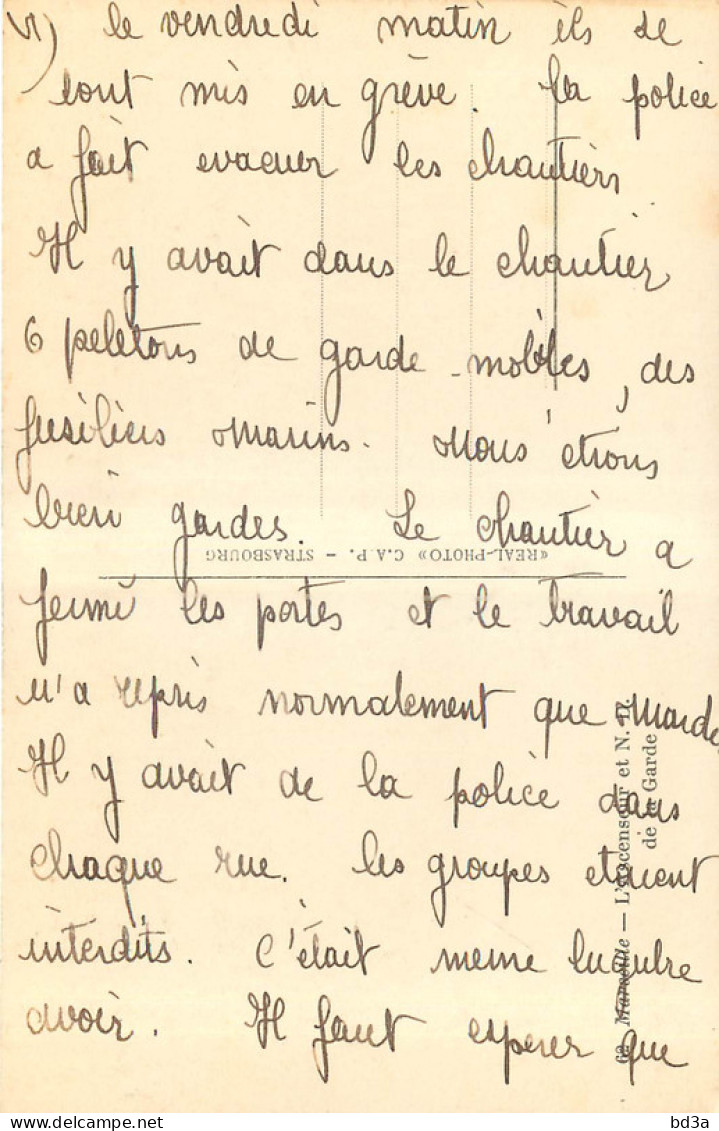 5) le vendredi matin ils se
sont mis en grève. la police
a fait evacuer les chantiers
Il y avait dans le chantier
6 peletons de garde-mobiles, des
fusiliers marins. Nous étions
bien gardes. Le chantier a
«REAL-PHOTO» C.A.P. – STRASBOURG
fermé les portes et le travail
n'a repris normalement que mardi
Il y avait de la police dans
chaque rue. les groupes etaient
interdits. c'était meme lugubre
avoir. Il faut esperer que
62 Marseille — L'Ascenseur et N. D.
de la Garde
bd3a